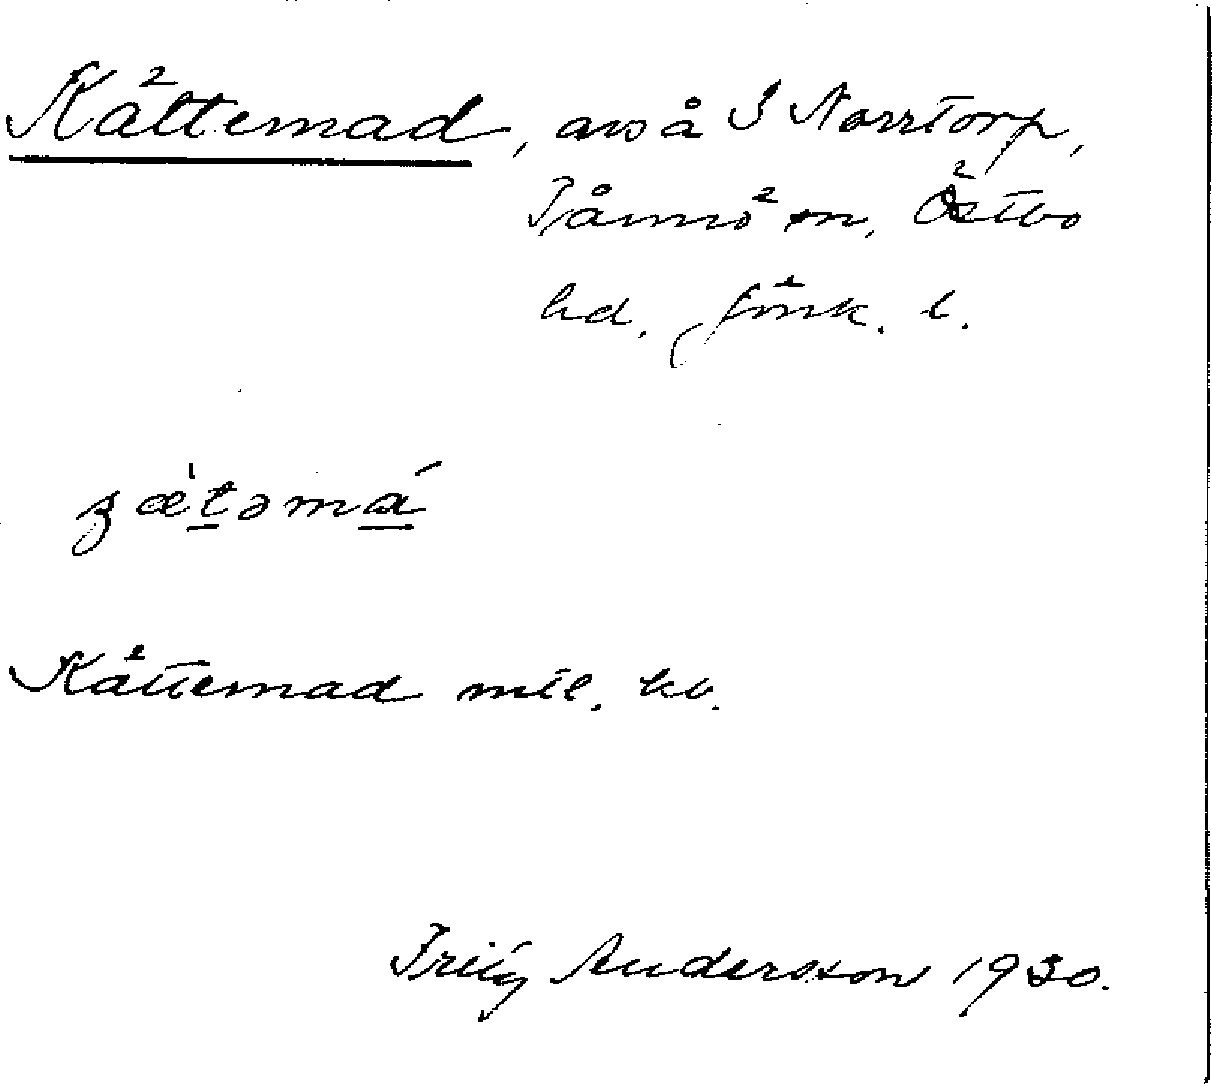 Kättemad, avs å S Norrtorp,
Tånnö sn, Östbo
hd, Jönk. l.
ʒætəmá
Kättemad mtl. kb.
Fritz Andersson 1930.